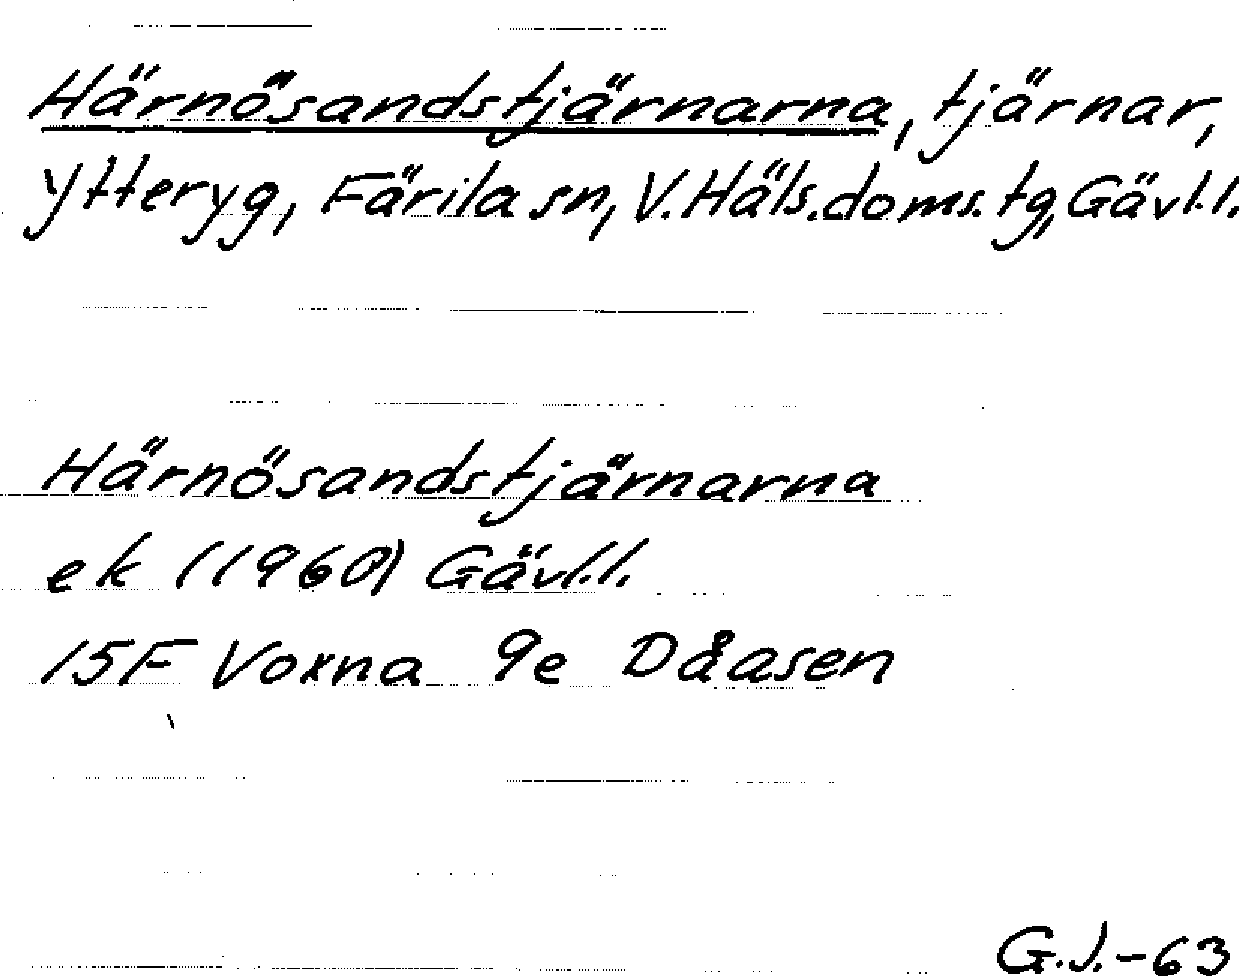 Härnösandstjärnarna, tjärnar,
Ytteryg, Färila sn, V. Häls. doms. tg, Gävl.l.
Härnösandstjärnarna
ek (1960) Gävl.l.
15F Voxna 9e Dåasen
G.J.-63